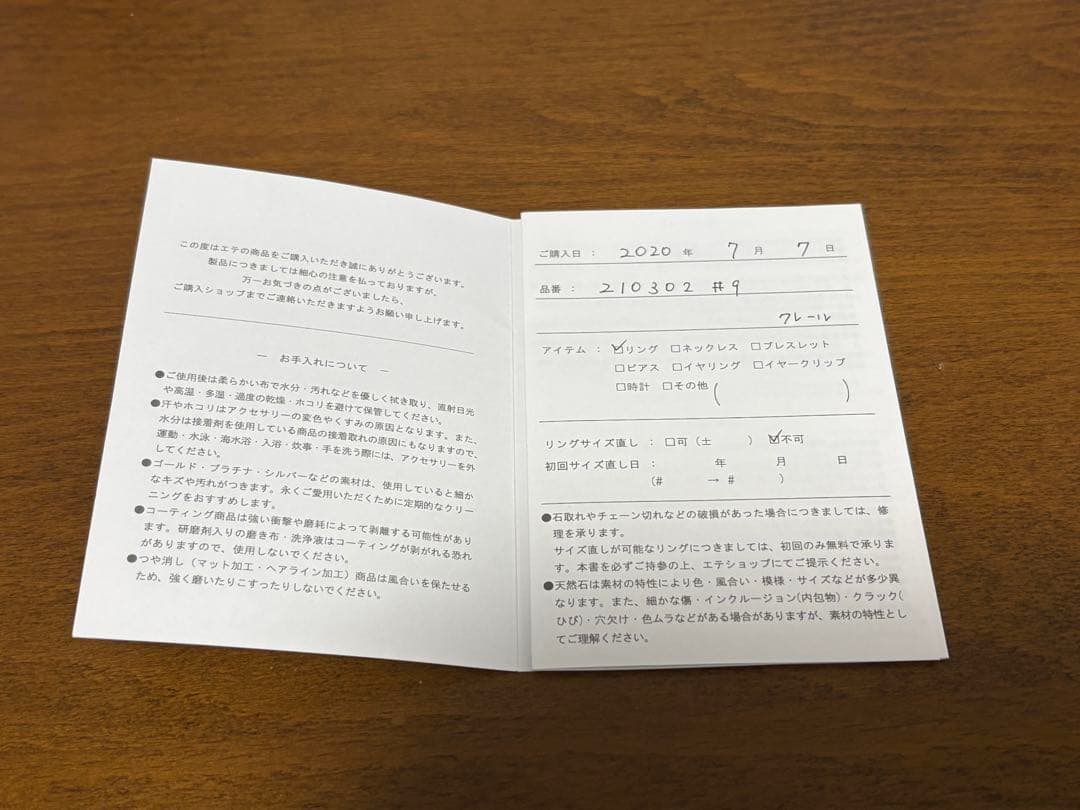 この度はエテの商品をご購入いただき誠にありがとうございます。
製品につきましては細心の注意を払っておりますが、
万一お気づきの点がございましたら、
ご購入ショップまでご連絡いただきますようお願い申し上げます。
― お手入れについて ―
●ご使用後は柔らかい布で水分・汚れなどを優しく拭き取り、直射日光
や高温・多湿・過度の乾燥・ホコリを避けて保管してください。
●汗やホコリはアクセサリーの変色やくすみの原因となります。また、
水分は接着剤を使用している商品の接着取れの原因にもなりますので、
運動・水泳・海水浴・入浴・炊事・手を洗う際には、アクセサリーを外
してください。
●ゴールド・プラチナ・シルバーなどの素材は、使用していると細か
なキズや汚れがつきます。永くご愛用いただくために定期的なクリー
ニングをおすすめします。
●コーティング商品は強い衝撃や磨耗によって剥離する可能性があり
ます。研磨剤入りの磨き布・洗浄液はコーティングが剥がれる恐れ
がありますので、使用しないでください。
●つや消し（マット加工・ヘアライン加工）商品は風合いを保たせる
ため、強く磨いたりこすったりしないでください。
ご購入日： 2020 年 7 月 7 日
品番： 210302 #9
クレール
アイテム： ☑リング □ネックレス □ブレスレット
□ピアス □イヤリング □イヤークリップ
□時計 □その他（ ）
リングサイズ直し： □可（± ） ☑不可
初回サイズ直し日： 年 月 日
（# → # ）
●石取れやチェーン切れなどの破損があった場合につきましては、修
理を承ります。
サイズ直しが可能なリングにつきましては、初回のみ無料で承りま
す。本書を必ずご持参の上、エテショップにてご提示ください。
●天然石は素材の特性により色・風合い・模様・サイズなどが多少異
なります。また、細かな傷・インクルージョン(内包物)・クラック(
ひび)・穴欠け・色ムラなどがある場合がありますが、素材の特性とし
てご理解ください。